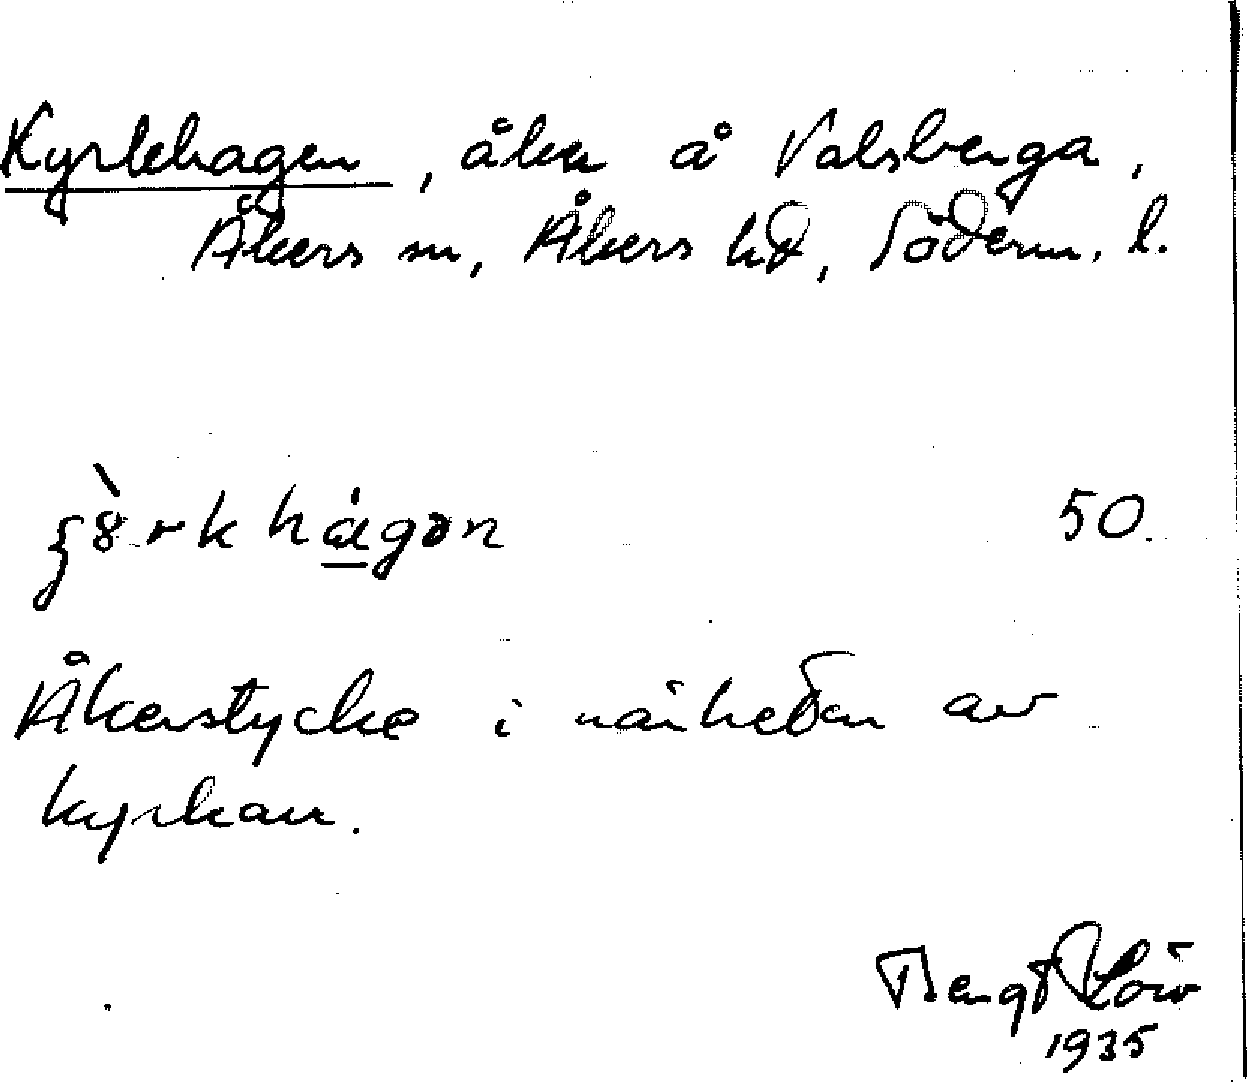 Kyrkhagen, åker å Valsberga,
Åkers sn, Åkers hd, Söderm. l.
ʃ8̀rkhȧ̱gən 50.
Åkerstycke i närheten av
kyrkan.
Bengt Löw
1935